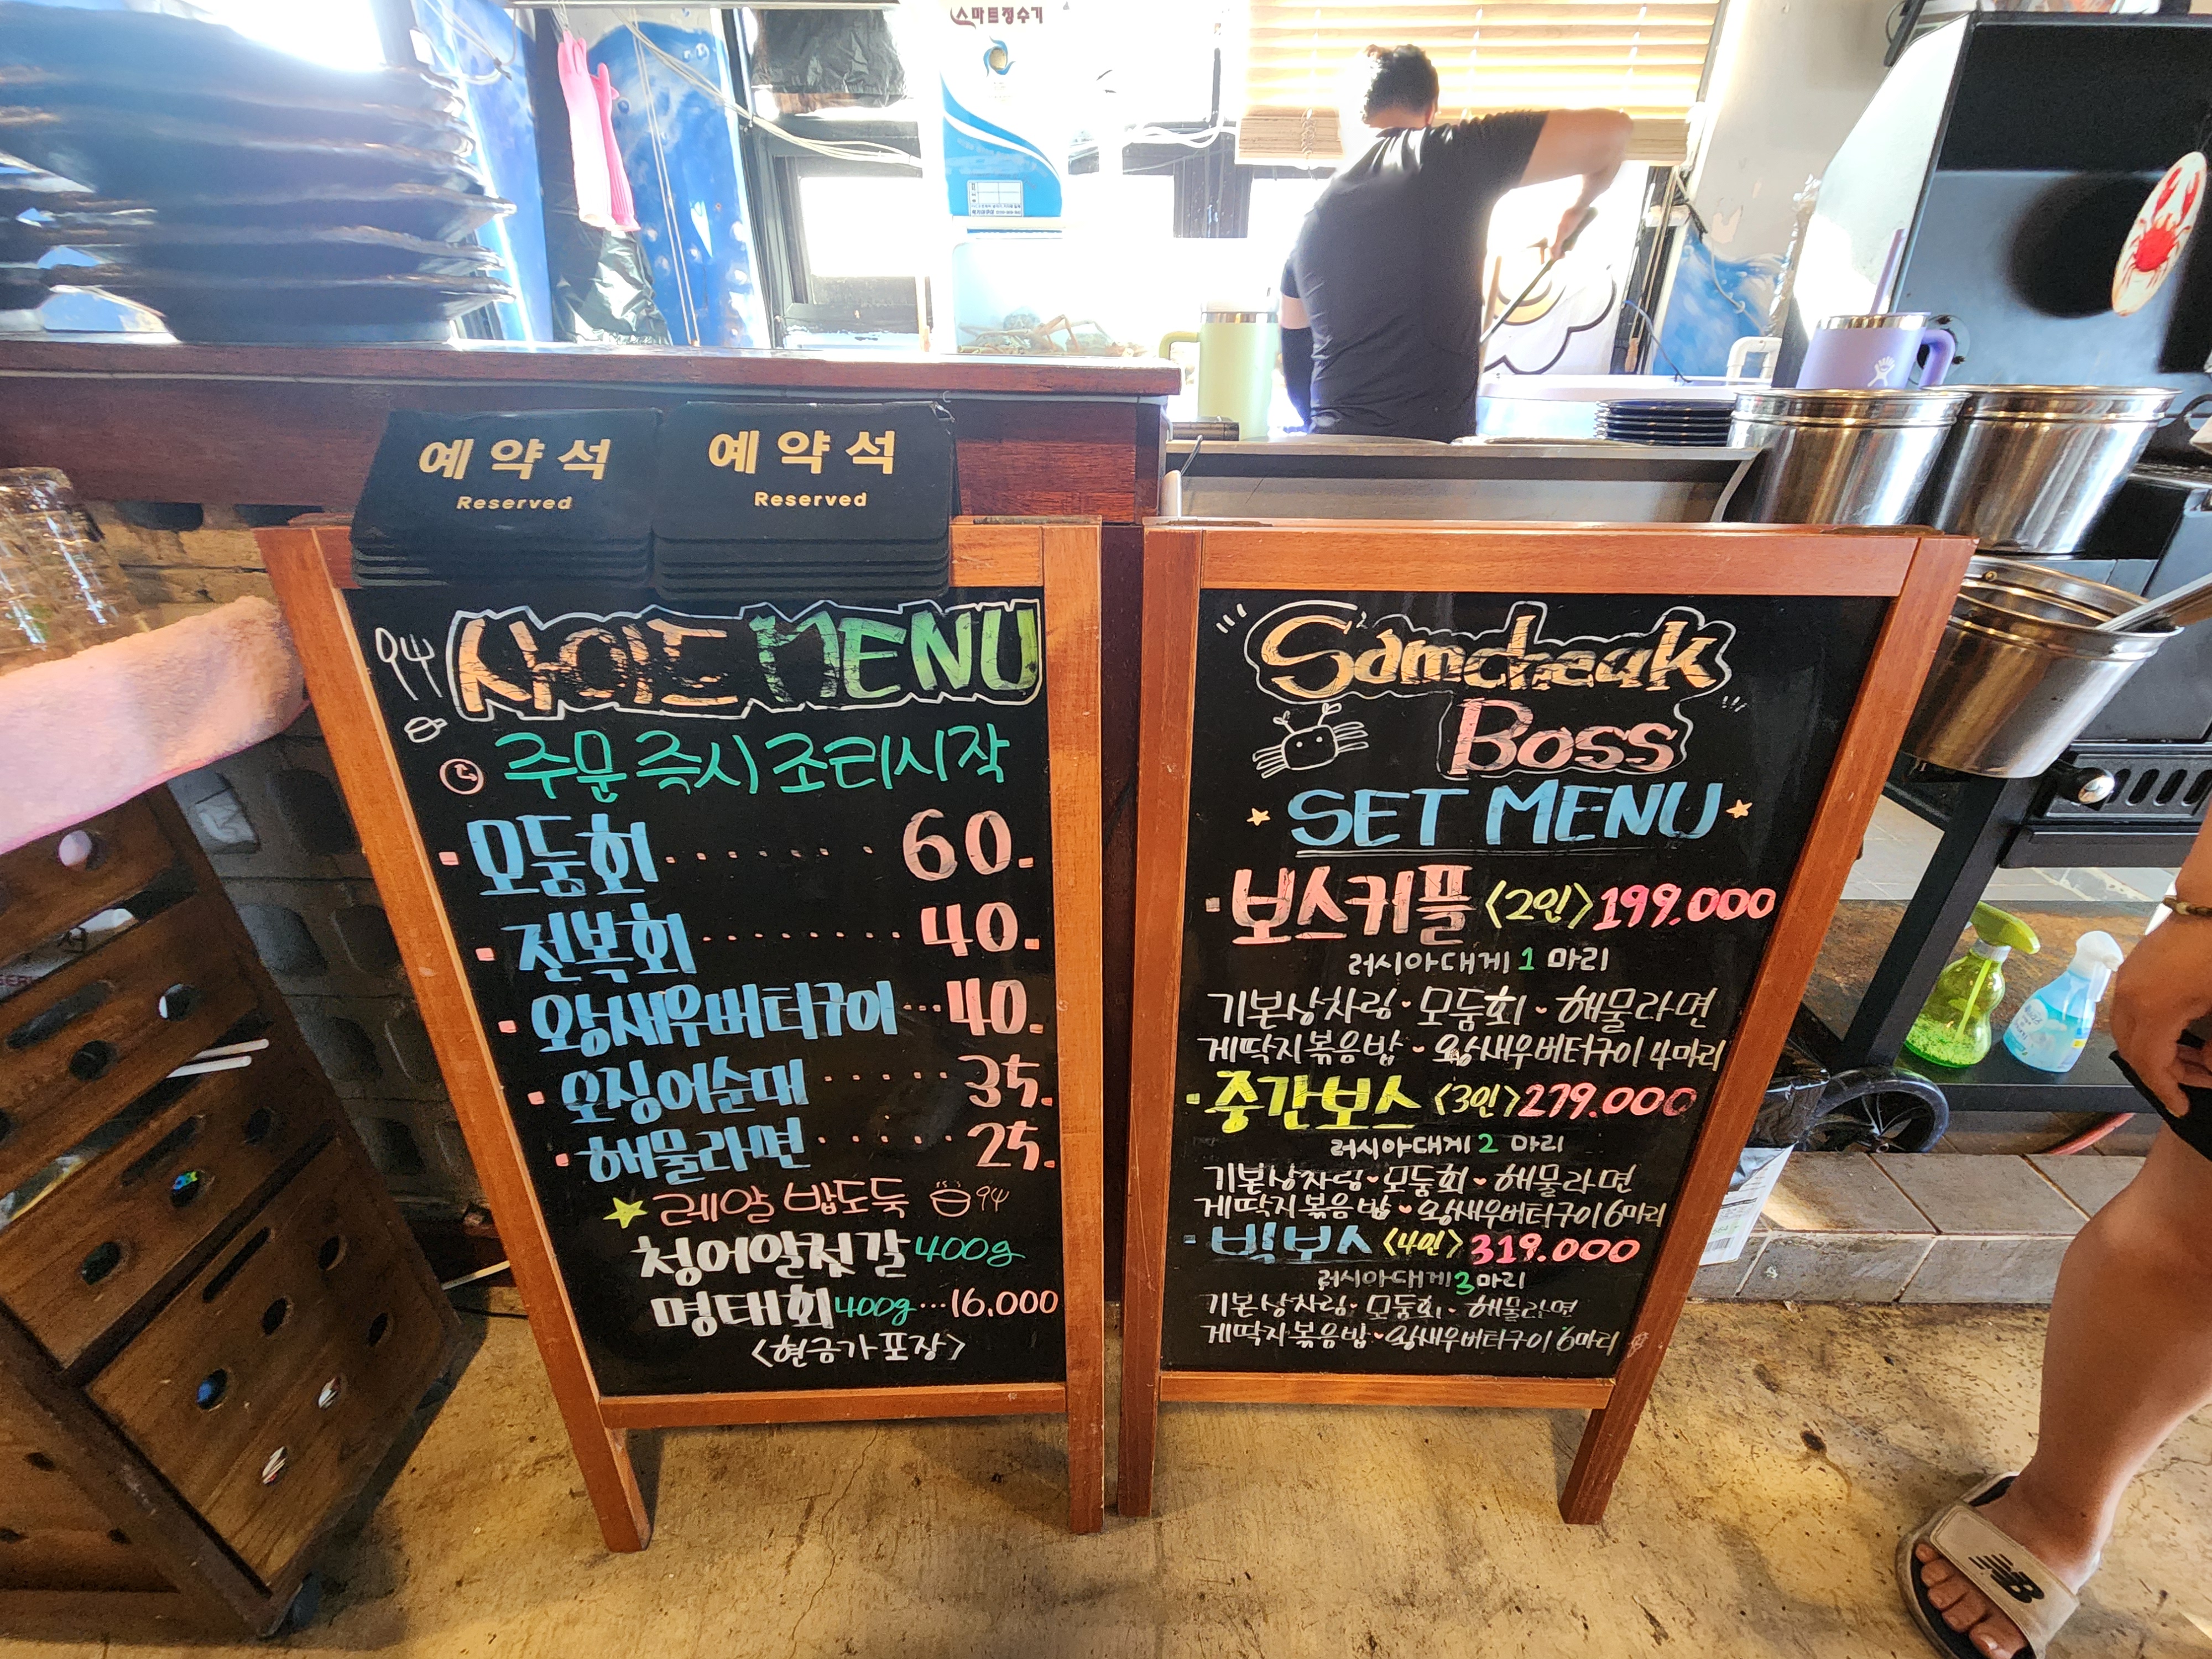 스마트정수기
예약석
Reserved
예약석
Reserved
사이드 MENU
주문 즉시 조리시작
모둠회 60.
전복회 40.
왕새우버터구이 40.
오징어순대 35.
해물라면 25.
레알 밥도둑
청어알젓갈 400g
명태회 400g 16,000
<현금가 포장>
Samcheak
Boss
SET MENU
보스커플 <2인> 199.000
러시아대게 1 마리
기본상차림 · 모둠회 · 해물라면
게딱지볶음밥 · 왕새우버터구이 4마리
중간보스 <3인> 279.000
러시아대게 2 마리
기본상차림 · 모둠회 · 해물라면
게딱지볶음밥 · 왕새우버터구이 6마리
빅보스 <4인> 319.000
러시아대게 3마리
기본상차림 · 모둠회 · 해물라면
게딱지볶음밥 · 왕새우버터구이 6마리